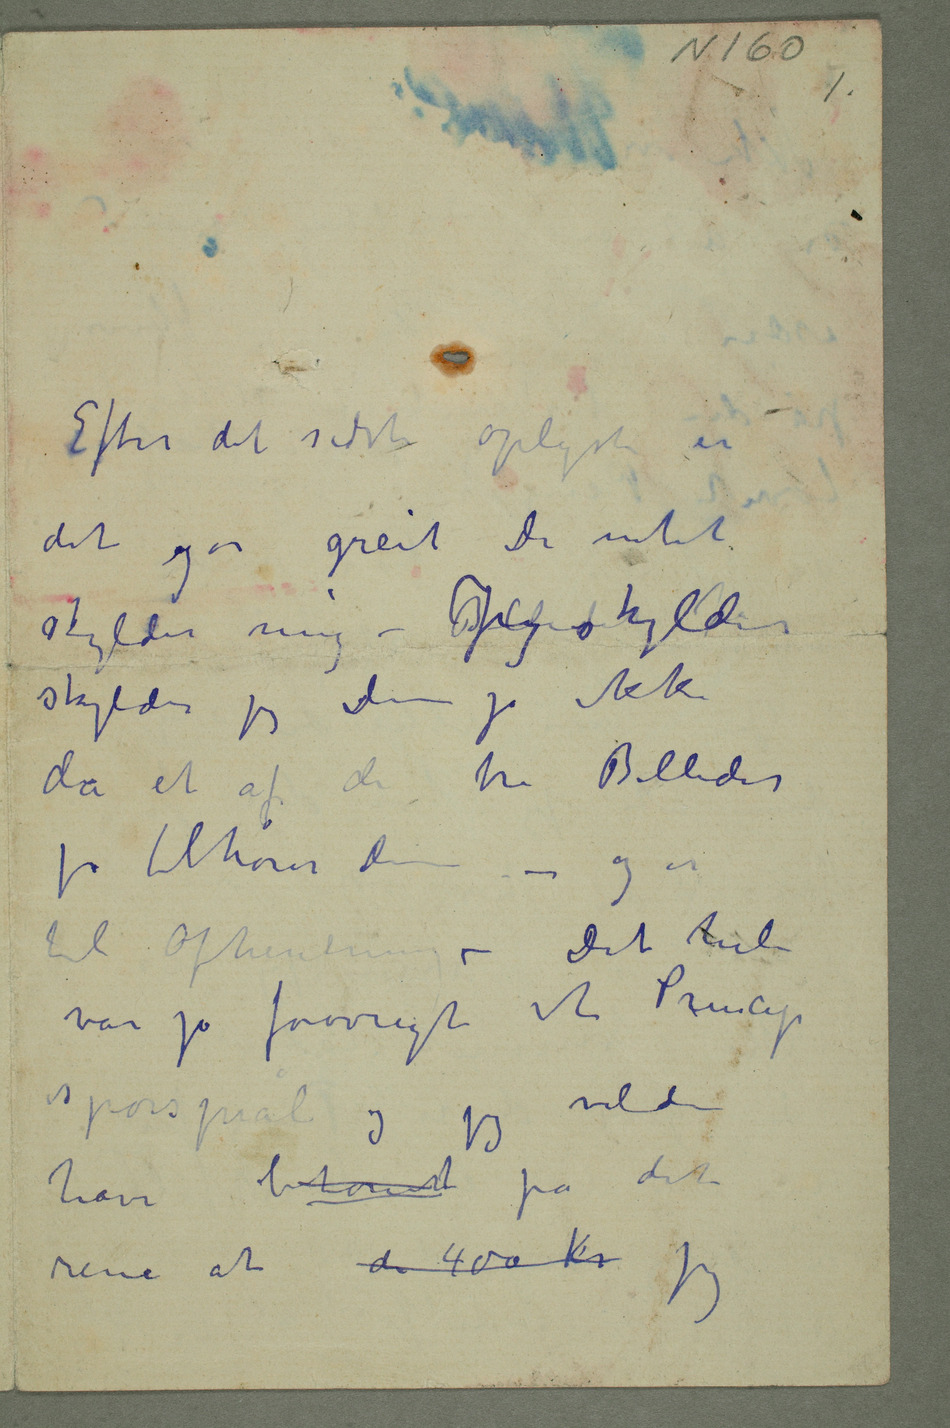 N 160
1.
Efter det sidste oplyste er
det jo greit De intet
skylder mig – skylder
skylder jeg Dem jo ikke
da et af de tre Billeder
jo tilhører Dem – og er
til Afhentning – Det hele
var jo forøvrigt et Princip
spørspmål og jeg vilde
have betonet på det
rene at de 400 Kr jeg